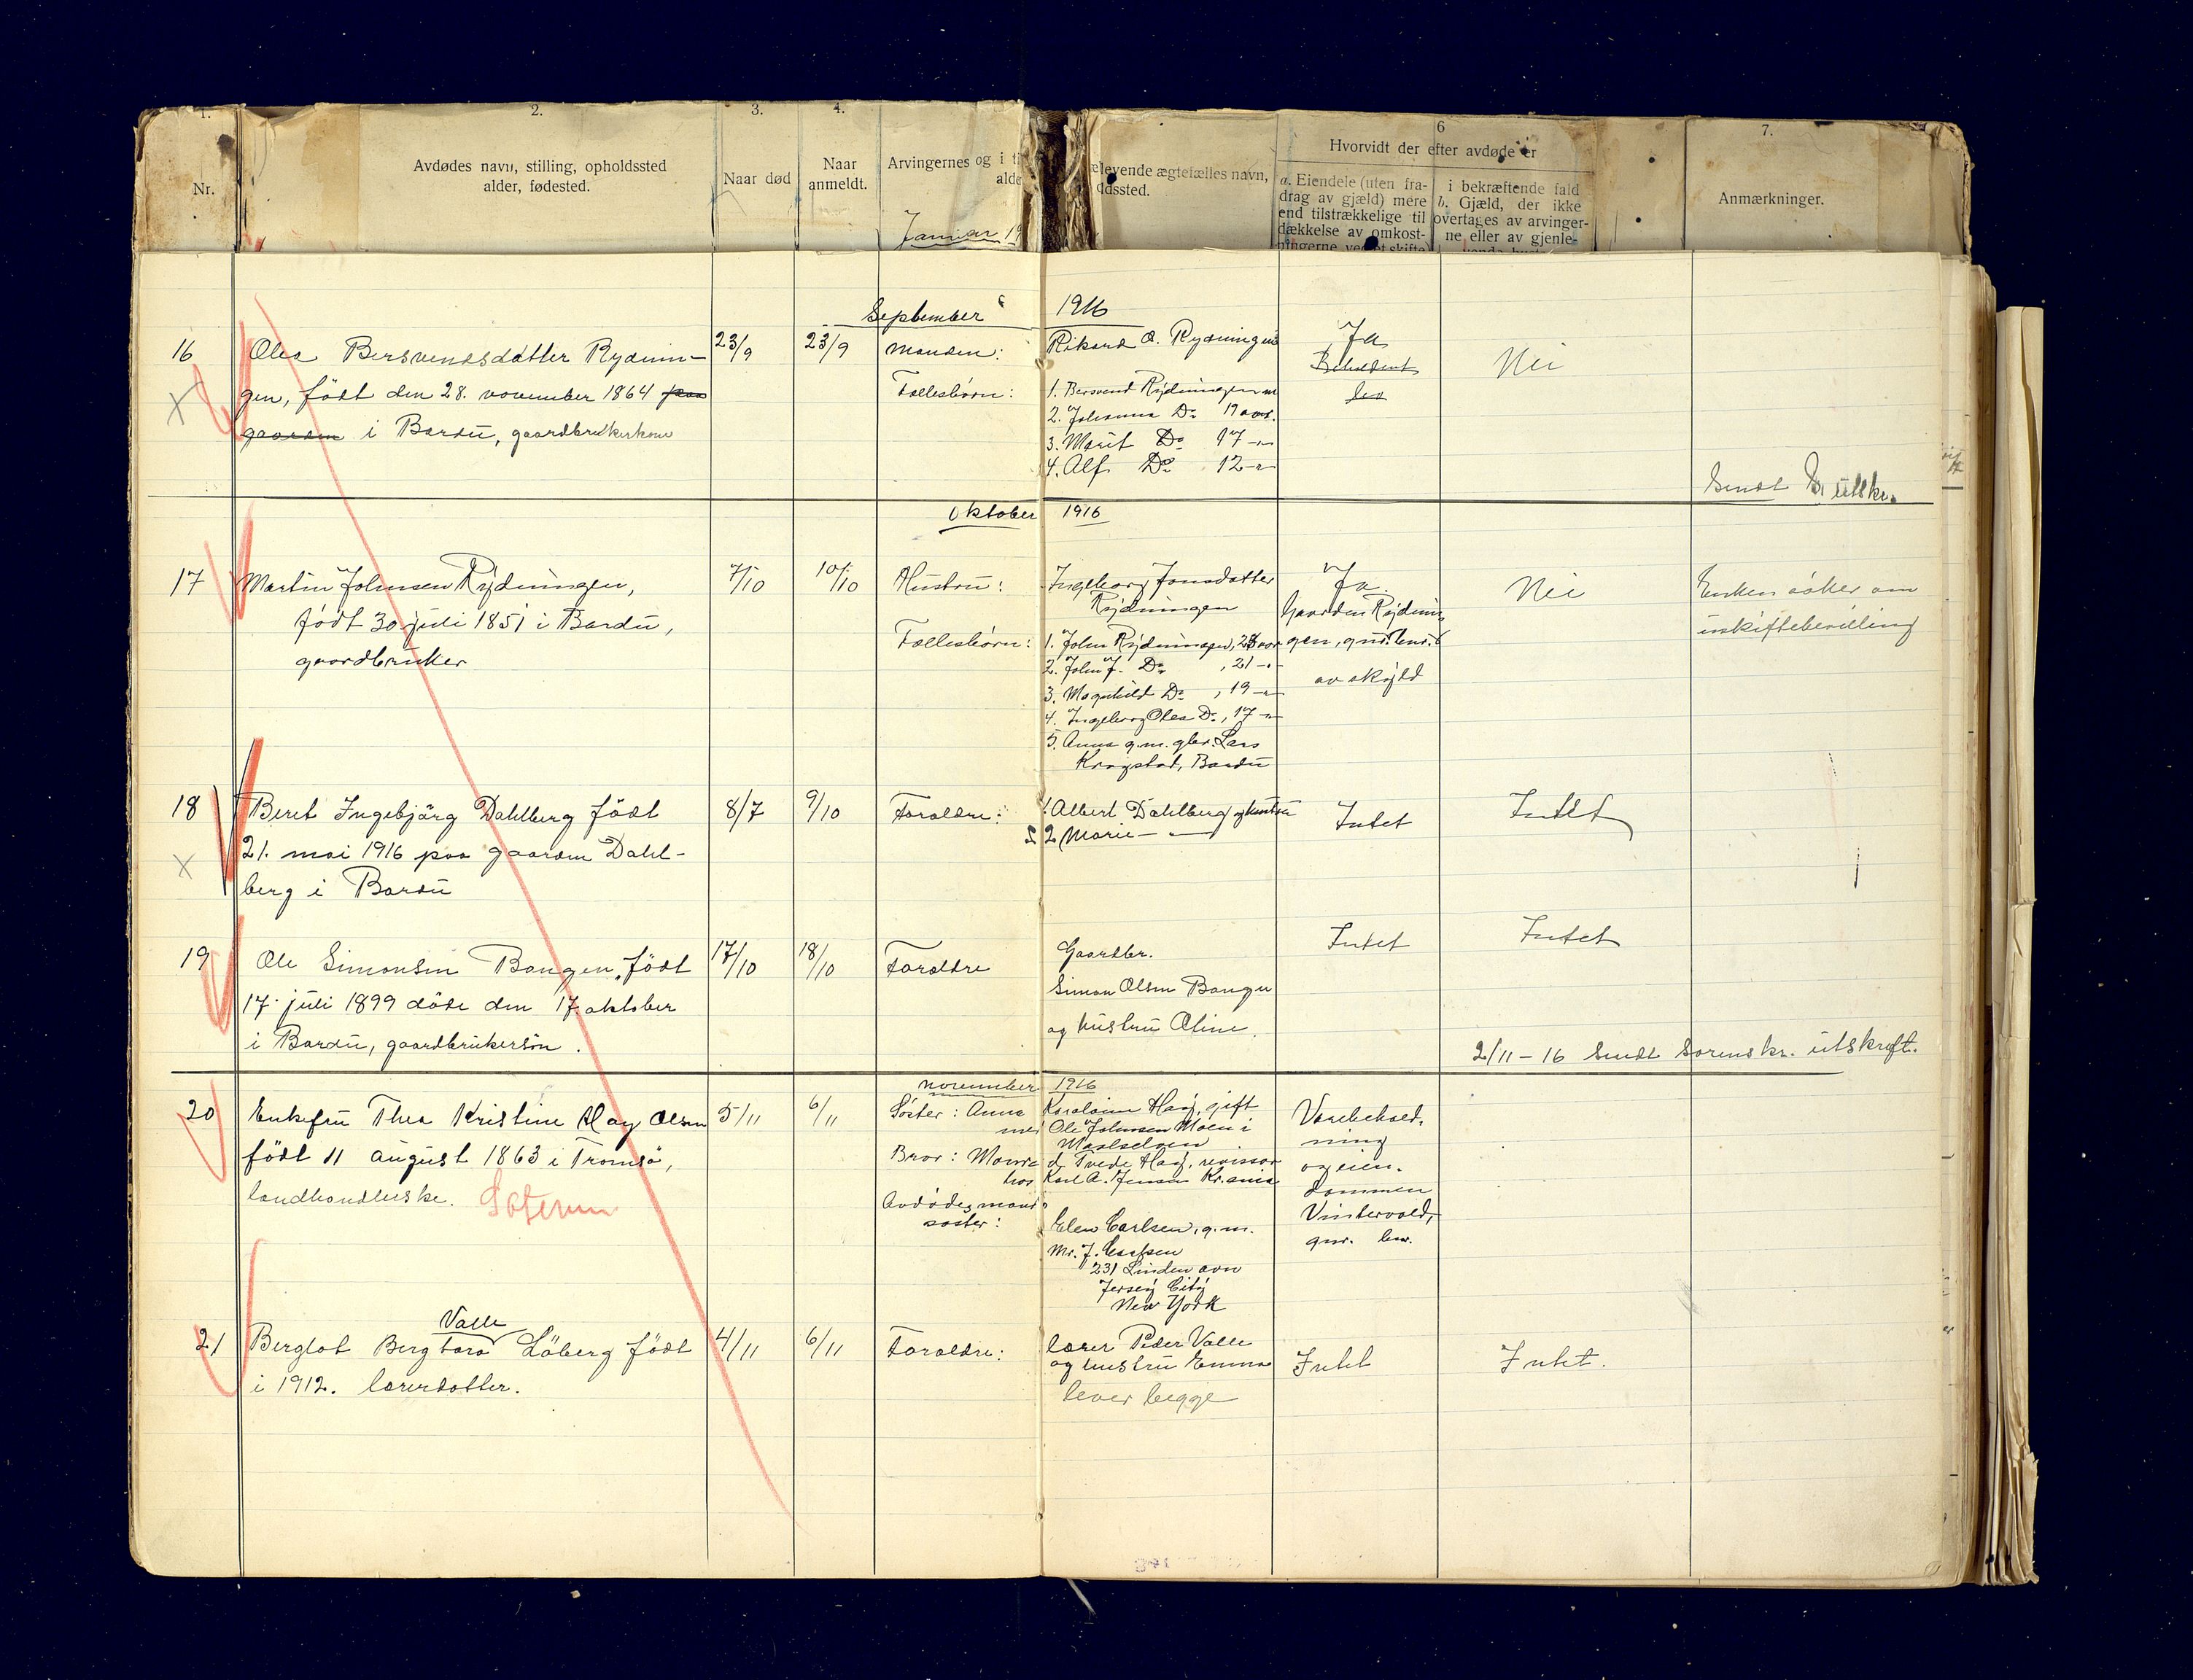 1.
2.
3.
4.
6
7.
Nr.
Avdødes navn, stilling, opholdssted
alder, fødested.
Naar død
Naar
anmeldt.
Arvingernes og i
alde
levende ægtefælles navn,
Hvorvidt der efter avdøde er
a. Eiendele (uten fra-
drag av gjæld) mere
end tilstrækkelige til
dækkelse av omkost-
i bekræftende fald
b. Gjæld, der ikke
overtages av arvinger-
ne eller av gjenle-
Anmærkninger.
Januar
September 1916
16 Olea Bersvendsdatter Rydnin- 23/9 23/9 Manden: Rikard O. Rydningen Ja
gen, födt den 28. november 1864 paa Fællesbörn: 1. Bersvend Rydningen Nei
gaarden i Bardu, gaardbrukerkone 2. Johanna Do 19 aar.
3. Marit Do 17 -"-
4. Alf Do 12 -"-
Sendt utskr.
Oktober 1916
17 Martin Johnsen Rydningen, 7/10 10/10 Hustru: Ingeborg Jonsdatter Ja. Nei Enken söker om
födt 30 juli 1851 i Bardu, Rydningen Gaarden Rydnin- uskiftebevilling
gaardbruker Fællesbörn: 1. John Rydningen, 28 aar gen, gnr. bnr.
2. John J. Do , 21 -"-
3. Magnhild Do , 19 -"- av skyld
4. Ingeborg Olea Do , 17 -"-
5. Anna g.m. gbr. Lars
Krogstad, Bardu
18 Beret Ingebjörg Dahlberg födt 8/7 9/10 Forældre: 1. Albert Dahlberg og hustru Intet Intet
21. mai 1916 paa gaarden Dahl- 2 Marie -"-
berg i Bardu
19 Ole Simonsen Bangen, födt 17/10 18/10 Forældre Gaardbr. Intet Intet
17. juli 1899 döde den 17. oktober Simon Olsen Bangen
i Bardu, gaardbrukersön. og hustru Oline
2/11-16 Sendt Sorenskr. utskrift.
november 1916
20 Enkefru Thea Kristine Hay Olsen 5/11 6/11 Söster: Anna Karoline Hay, gift Varebehold-
med Ole Johnsen Moen i ning
födt 11 august 1863 i Tromsö, Maalselven og eien-
landhandlerske. Bror: Tvede Hay, revisor dommen
hos Karl A. Jensen Kr.ania Vintervold,
Avdødes mands gnr. bnr.
söster: Elen Carlsen, g.m.
Mr. J. Carlsen
231 Linden avn
Jersey City
New York
Valle
21 Bergliot Bergtora Löberg födt 4/11 6/11 Forældre: lærer Peder Valle
i 1912. lærerdatter. og hustru Emma Intet Intet.
lever begge